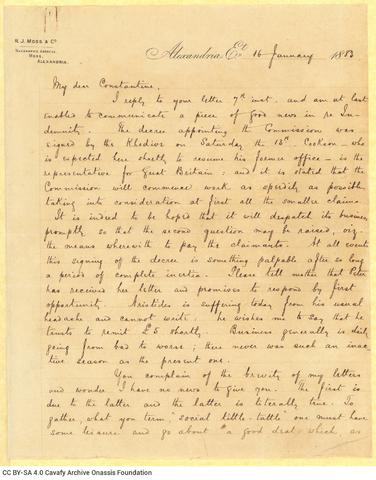 R. J. MOSS & Co.
TELEGRAPHIC ADDRESS
MOSS,
ALEXANDRIA.
Alexandria, Et. 16 January 1883
My dear Constantine,
I reply to your letter 7th inst. and am at last
enabled to communicate a piece of good news in re In-
demnity. The decree appointing the Commission was
signed by the Khedive on Saturday the 13th. Cookson - who
is expected here shortly to resume his former office - is the
representative for Great Britain; and it is stated that the
Commission will commence work as speedily as possible
taking into consideration at first all the smaller claims.
It is indeed to be hoped that it will despatch its business
promptly so that the second question may be raised, viz.
the means wherewith to pay the claimants. At all events
this signing of the decree is something palpable after so long
a period of complete inertia. Please tell mother that Peter
has received her letter and promises to respond by first
opportunity. Aristides is suffering today from his usual
headache and cannot write. he wishes me to say that he
trusts to remit £5 shortly. Business generally is daily
going from bad to worse; there never was such an inac-
tive season as the present one.
You complain of the brevity of my letters
and wonder I have no news to give you. The first is
due to the latter and the latter is literally true. To
gather, what you term, "social little-tattle" one must have
some leisure and go about "a good deal" which as
CC BY-SA 4.0 Cavafy Archive Onassis Foundation